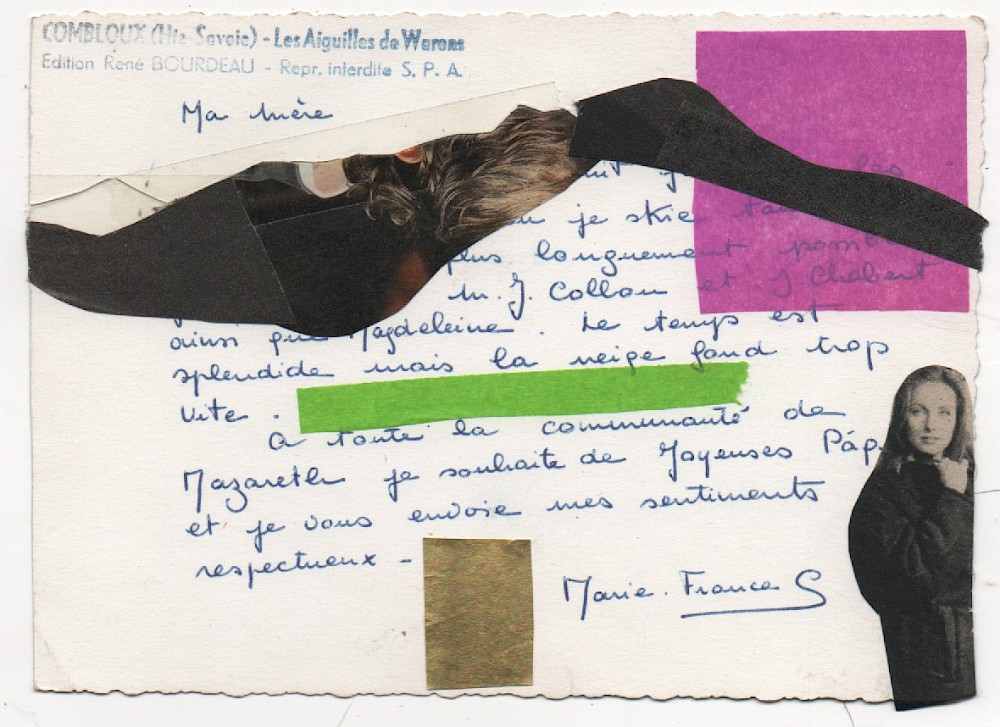 COMBLOUX (Hte Savoie) - Les Aiguilles de Warens
Edition René BOURDEAU - Repr. interdite S. P. A.
Ma Mère
je skie
plus longuement
M. J. Collon et J Chabert
ainsi que Magdeleine. Le temps est
splendide mais la neige fond trop
vite.
A toute la communauté de
Nazareth je souhaite de Joyeuses Pâq
et je vous envoie mes sentiments
respectueux -
Marie-France S